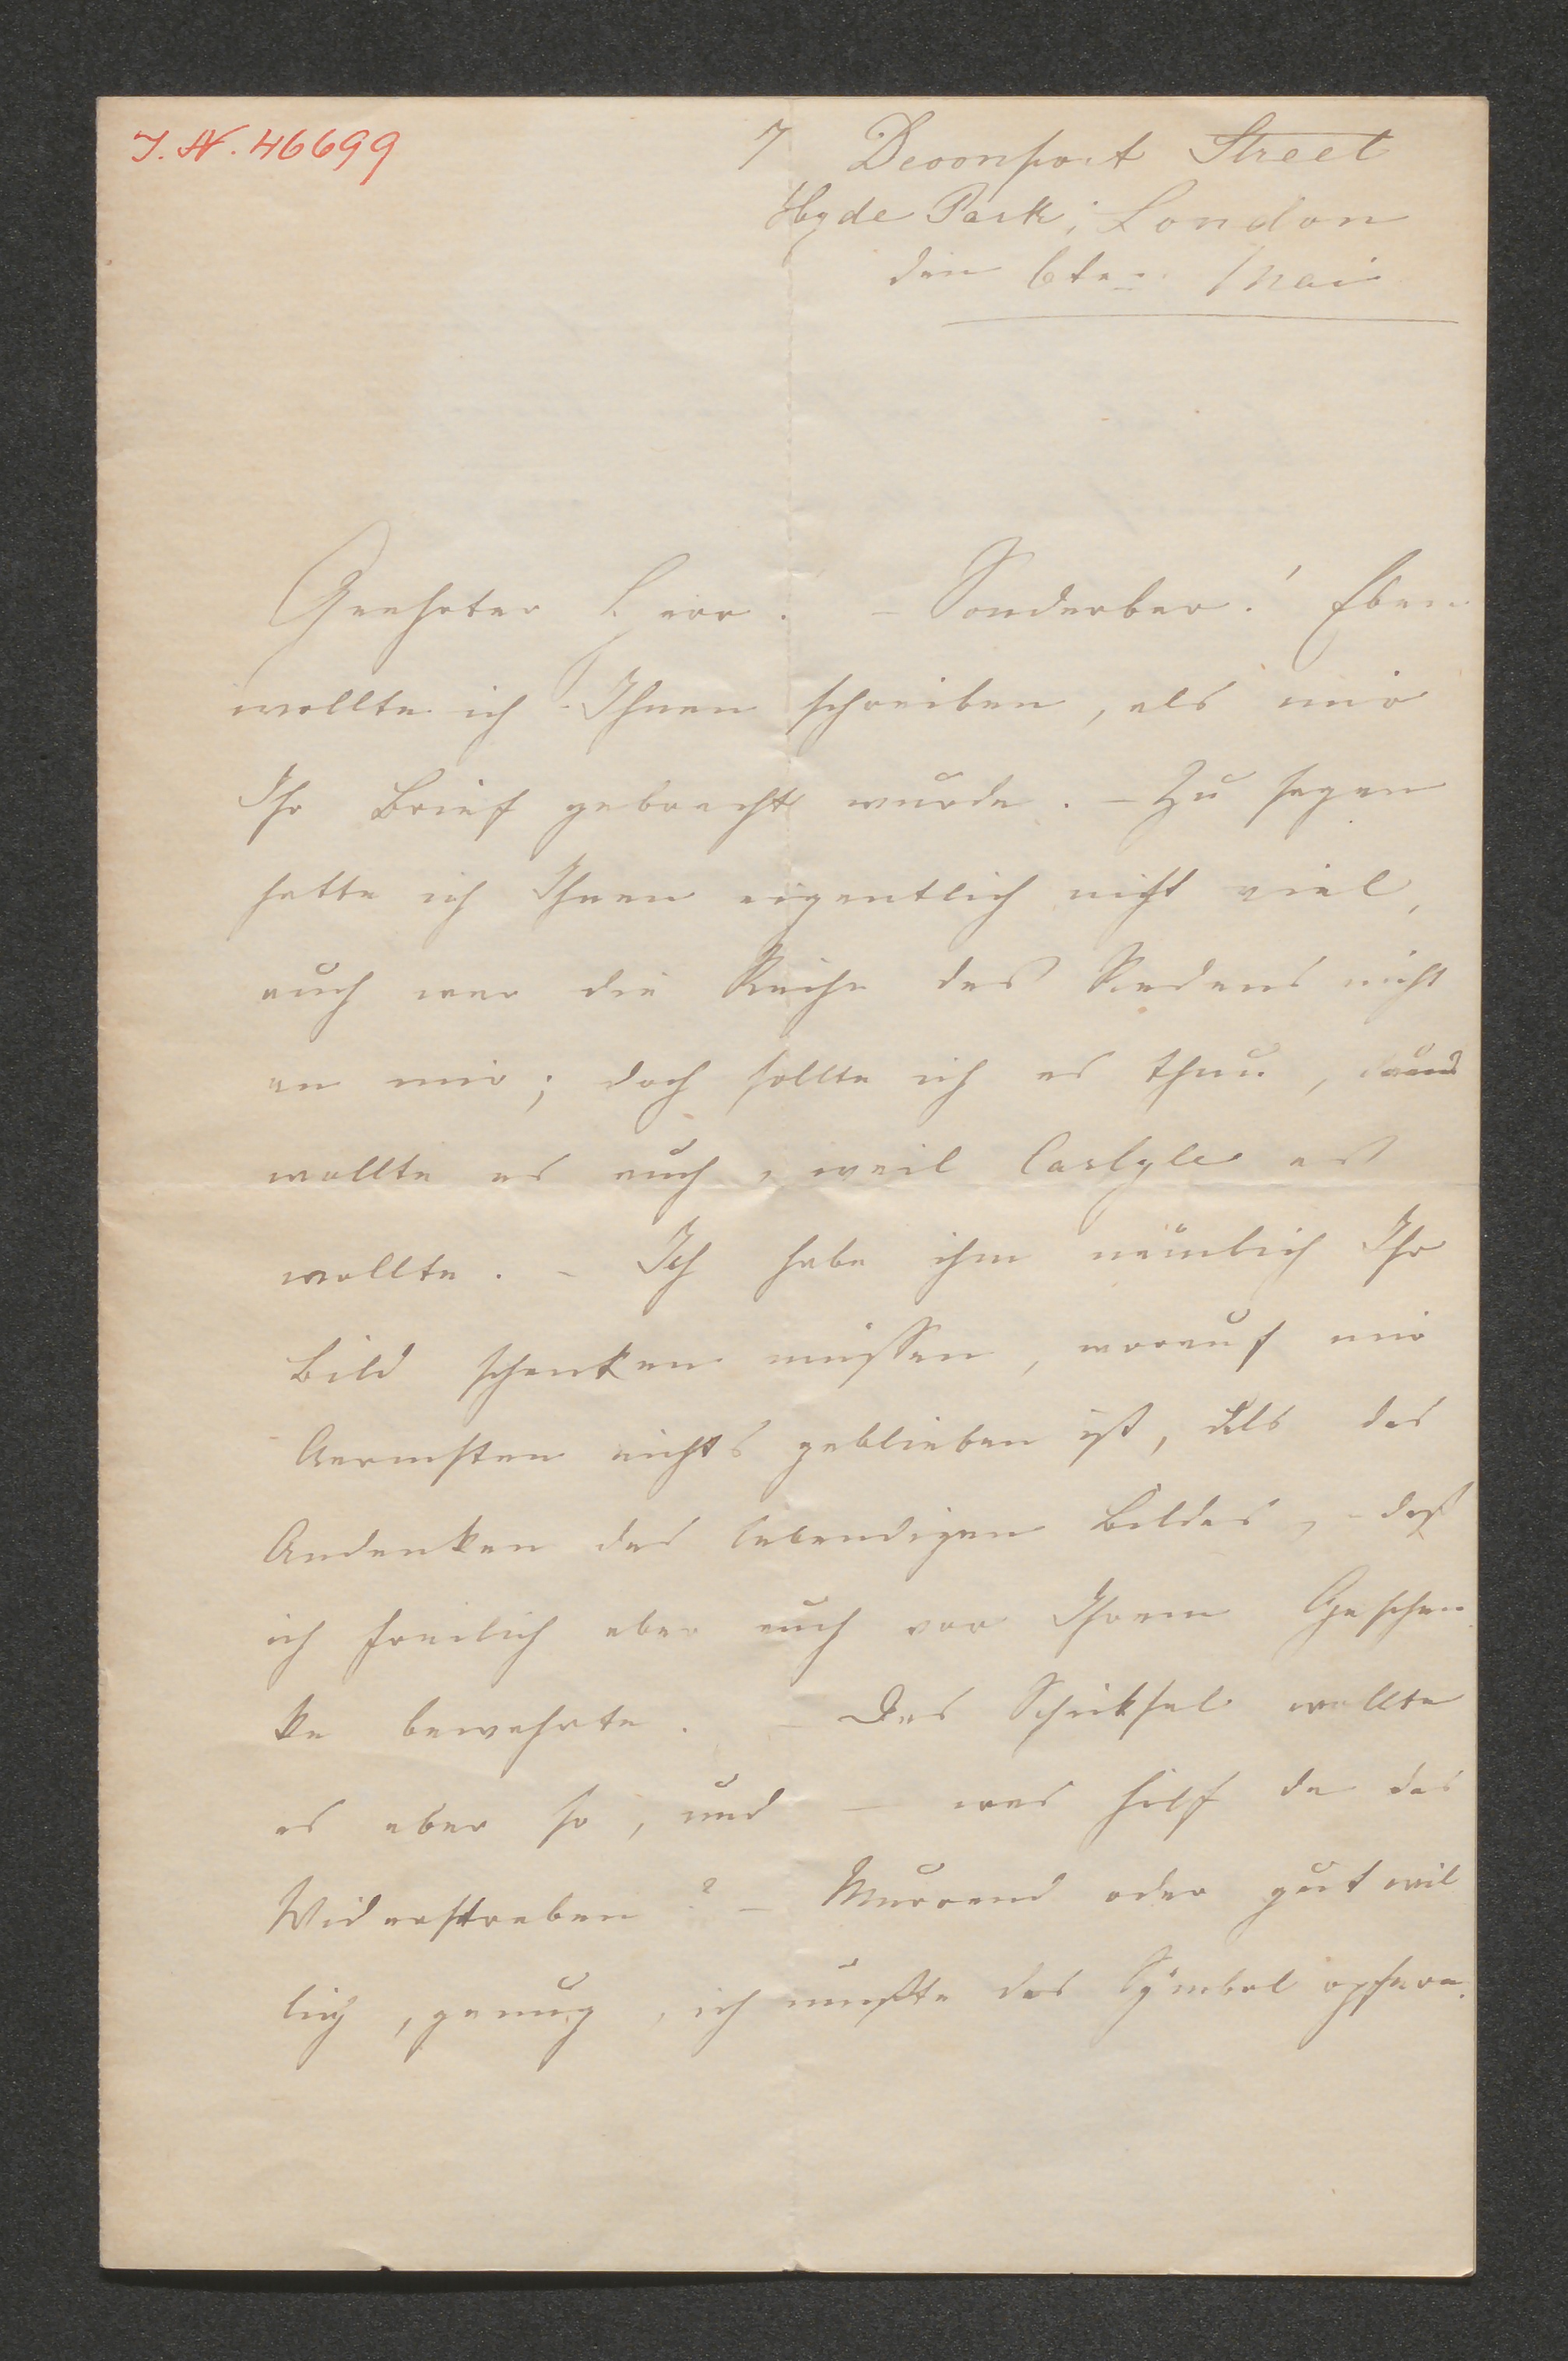 I. N. 46699
7 Devonport Street
Hyde Park, London
den 6ten Mai
Geehrter Herr. – Sonderbar! Eben
wollte ich Ihnen schreiben, als mir
Ihr Brief gebracht wurde. – Zu sagen
hatte ich Ihnen eigentlich nicht viel,
auch war die Reihe des Redens nicht
an mir; doch sollte ich es thun, und
wollte es auch, weil Carlyle es
wollte. – Ich habe ihm nämlich Ihr
Bild schenken müssen, worauf mir
Aermsten nichts geblieben ist, als das
Andenken des lebendigen Bildes, – daß
ich freilich aber auch vor Ihrem Geschen
ke bewahrte. – Das Schicksal wollte
es aber so, und – was hilf da das
Widerstreben? – Murrend oder gutwil
lig, genug, ich mußte das Symbol opfern.